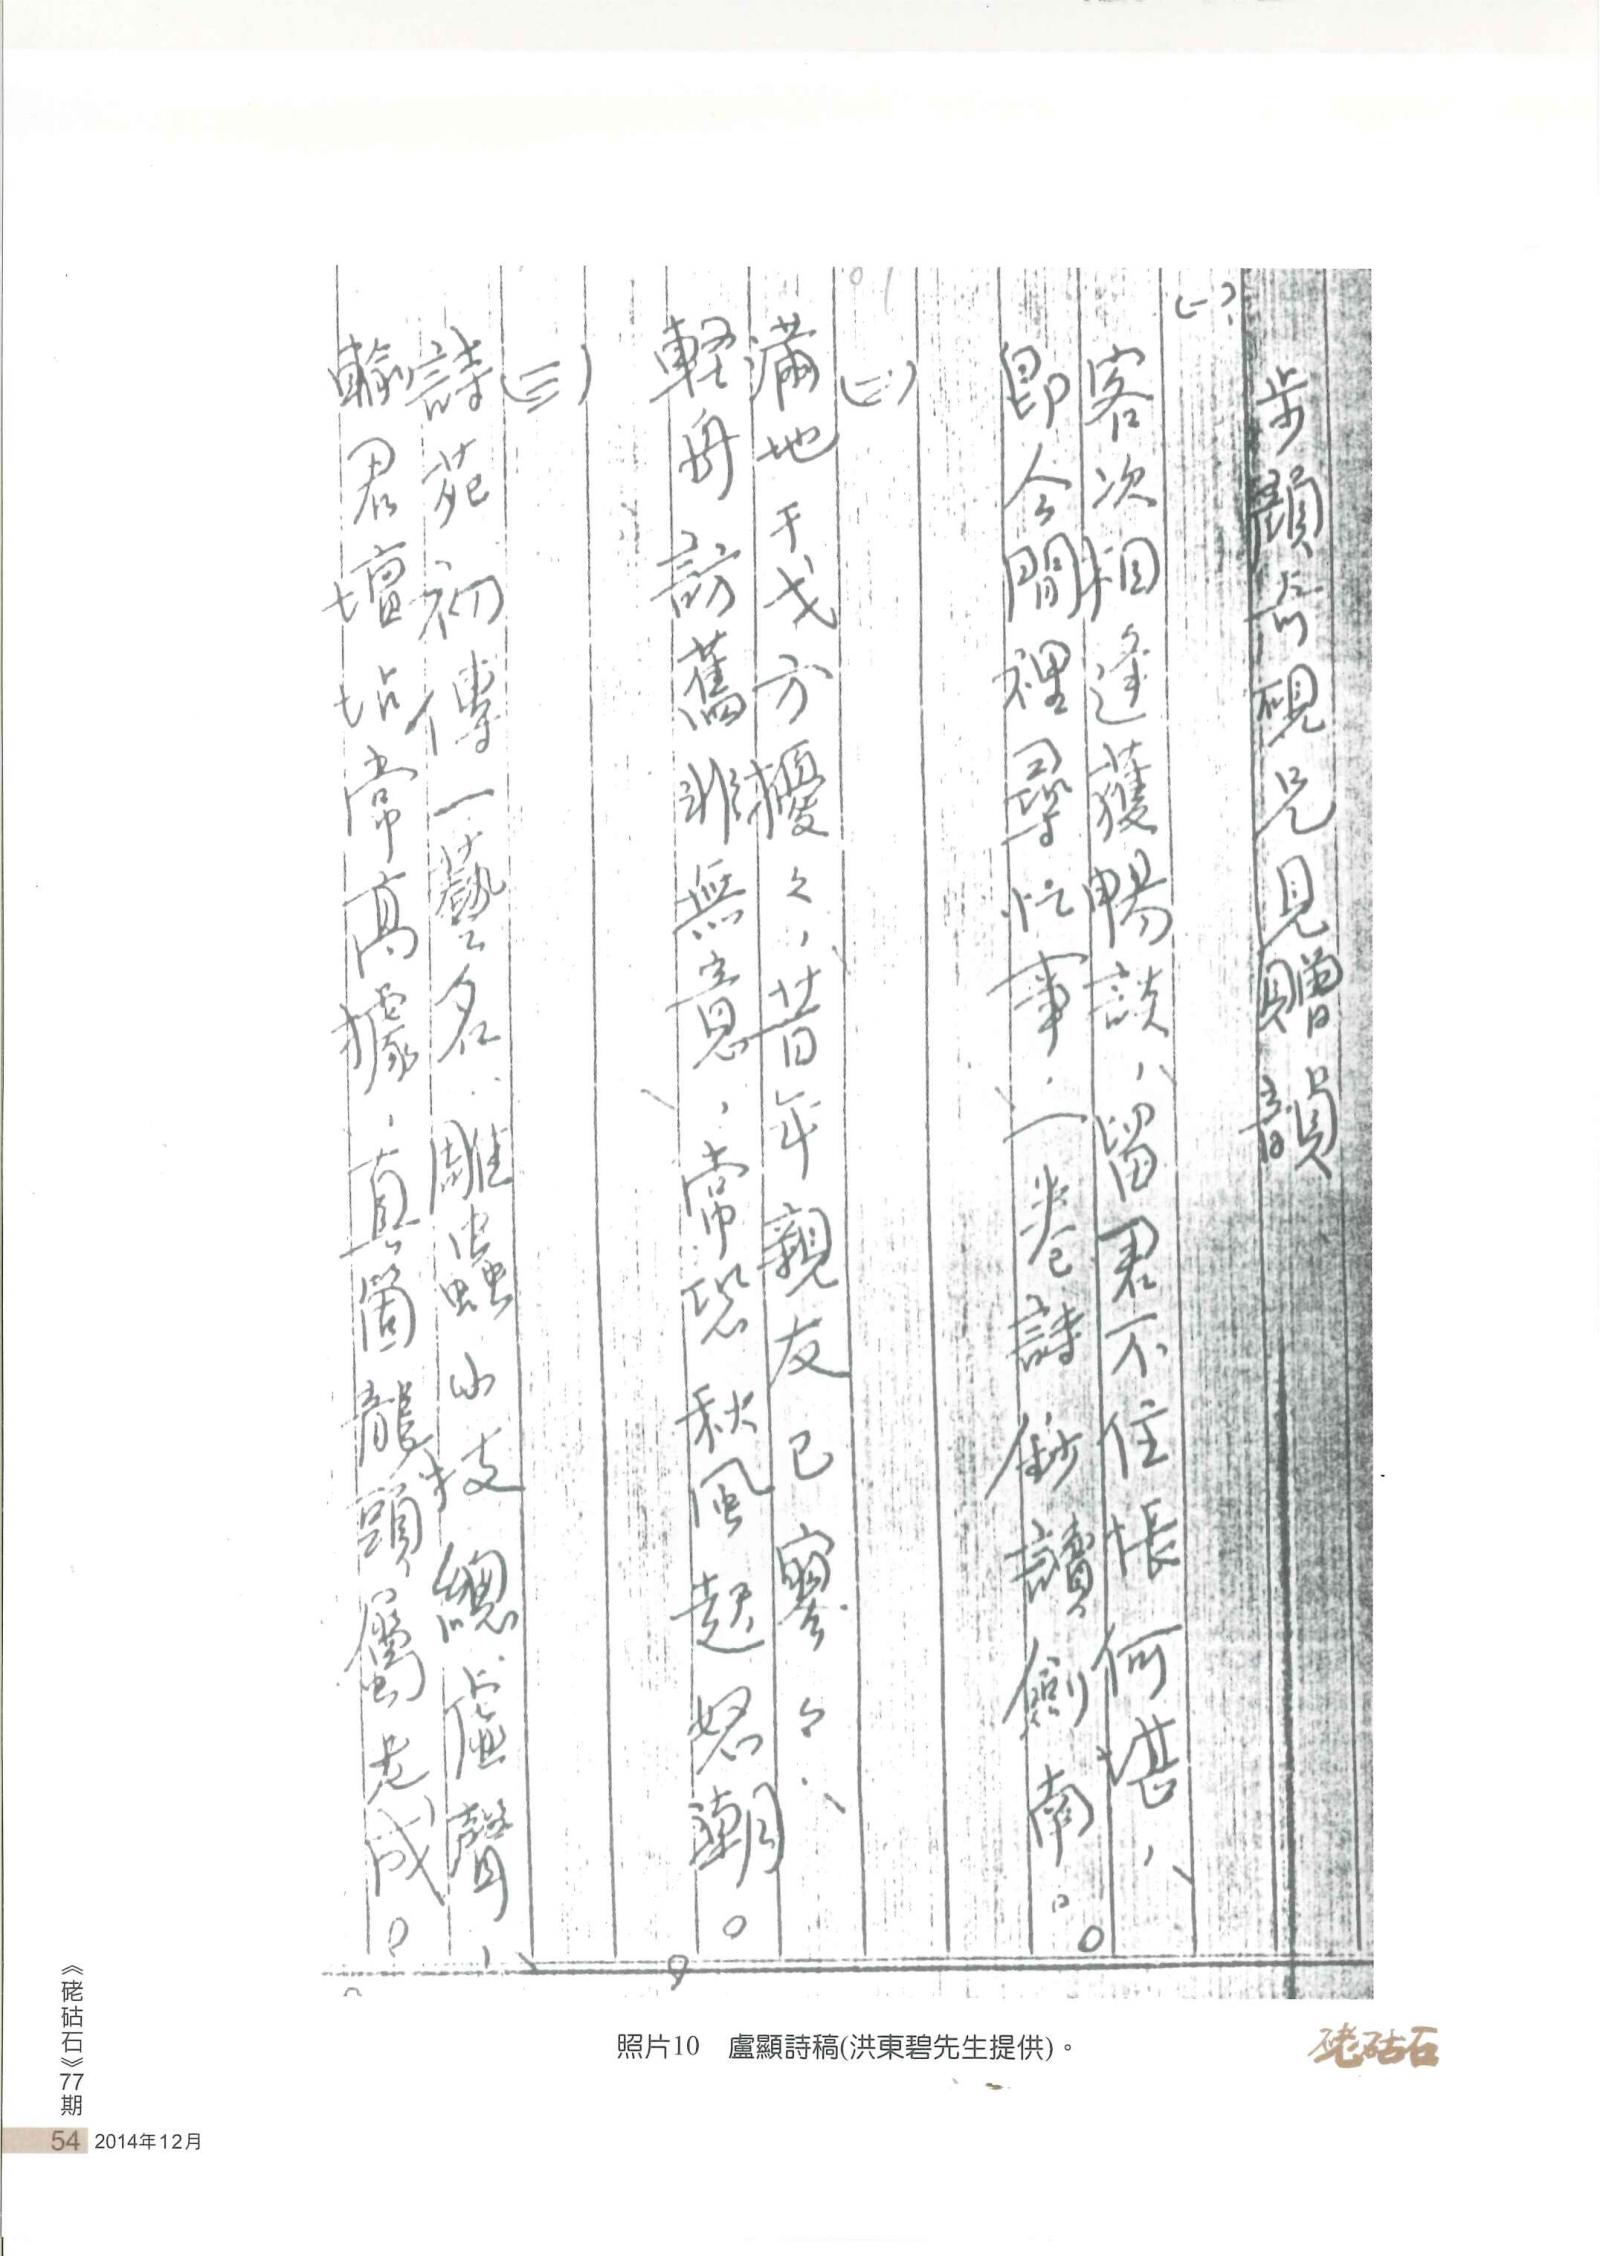 步顏其硯兄見贈韻
(一)
客次相逢獲暢談，留君不住悵何堪，
即今閒裡尋忙事，一卷詩鈔讀劍南。
(二)
滿地干戈方擾々，昔年親友已寥々，
輕舟訪舊非無意，常恐秋風起怒潮。
(三)
詩苑初傳一藝名，雕蟲小技總虛聲，
輸君壇坫常高據，真箇龍頭屬老成。
照片10 盧顯詩稿(洪東碧先生提供)。
硓𥑮石
《硓𥑮石》77期
54 2014年12月